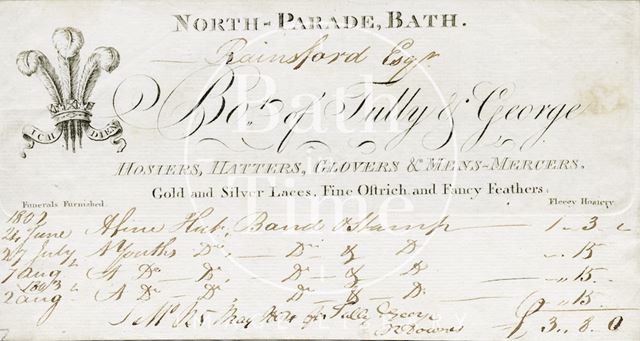 NORTH-PARADE, BATH.
Rainsford Esqr
ICH DIEN
Bot. of Tully & George
HOSIERS, HATTERS, GLOVERS & MENS-MERCERS.
Gold and Silver Laces, Fine Ostrich, and Fancy Feathers.
Funerals Furnished. Fleecy Hosiery.
1802
24 June A fine Hat, Band & Stamp 1 - 3 -
27 July A Youths Do. Do. & D. " 15
7 Aug A Do. Do. Do. & D. " 15
1803
2 aug A Do. Do. Do. & D. " 15
25 May 1804 of Tully & George £ 3 . 8 . 0
Bath in Time